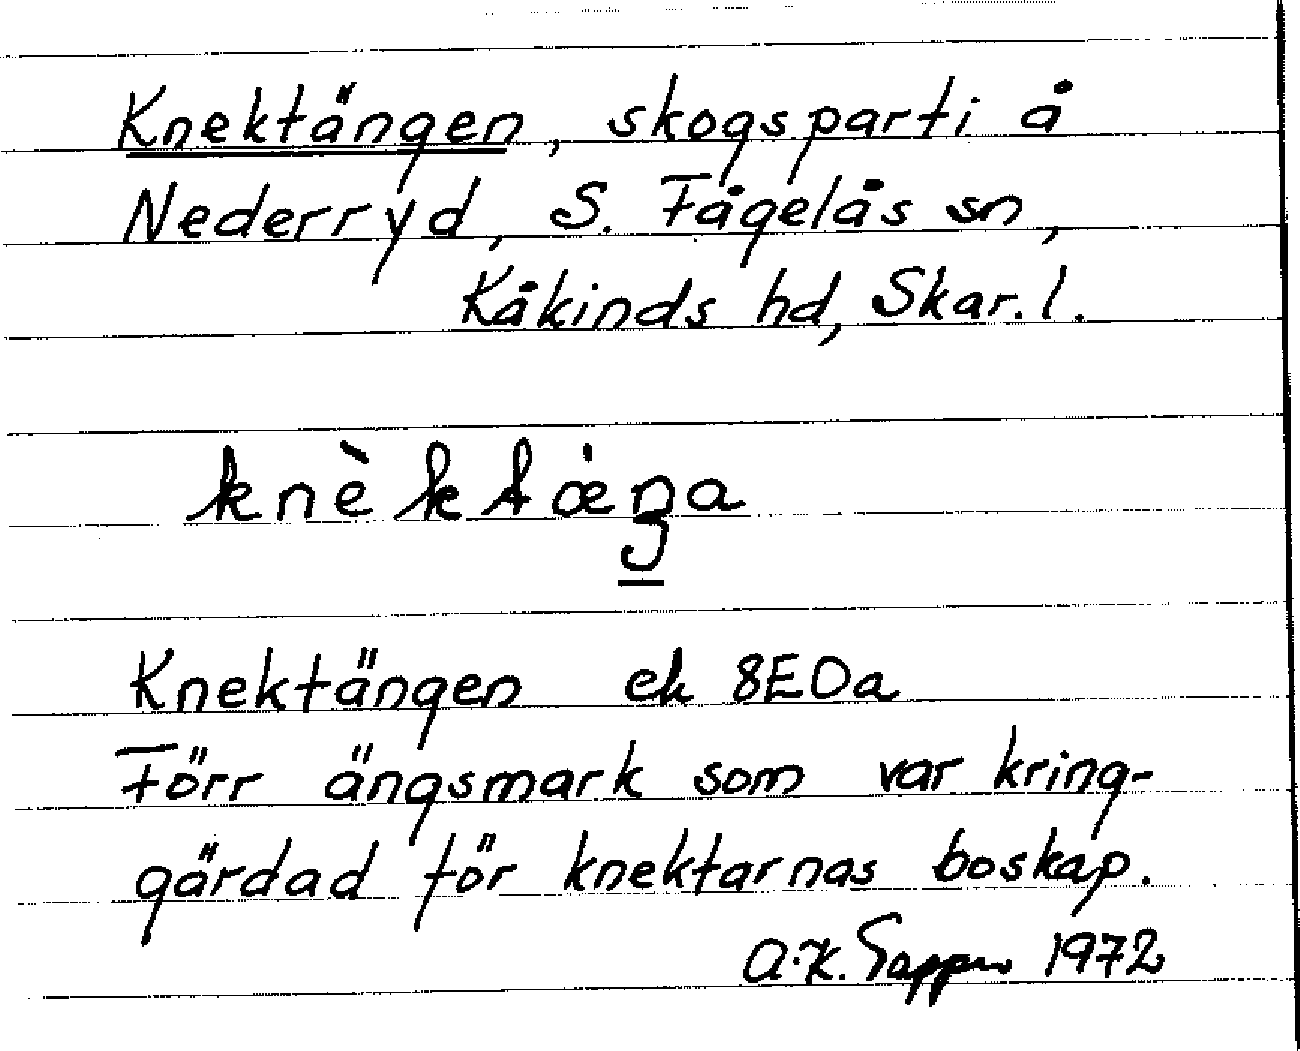 Knektängen, skogsparti å
Nederryd, S. Fågelås sn,
Kåkinds hd, Skar. l.
knèktæŋa
Knektängen ek 8E0a
Förr ängsmark som var kring-
gärdad för knektarnas boskap.
A.K. 1972